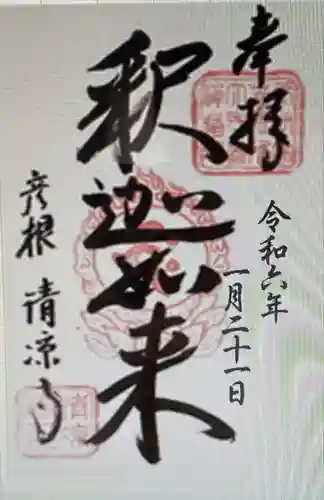 奉拝
令和六年
一月二十一日
釈迦如来
彦根 清涼寺